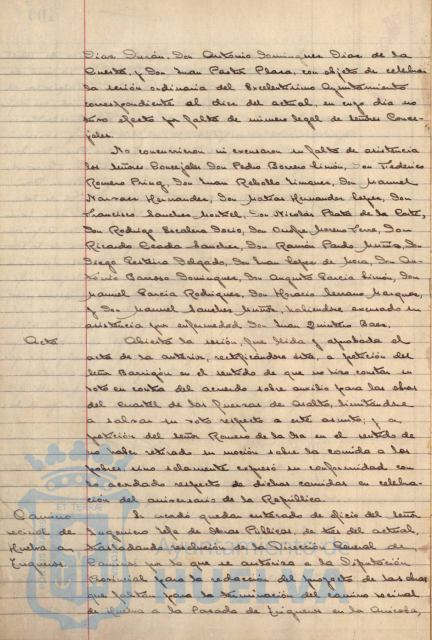 Díaz Durán, Don Antonio Domínguez Díaz de la
Cuesta, y Don Juan Pastor Plaza, con objeto de celebrar
la sesión ordinaria del Excelentísimo Ayuntamiento
correspondiente al diez del actual, en cuyo día no
tuvo efecto por falta de número legal de señores Conce-
jales.
No concurrieron ni excusaron su falta de asistencia
los señores Concejales Don Pedro Borrero Limón, Don Federico
Romero Don Juan Rebollo Jimenez, Don Manuel
Narvaez Hernandez, Don Matías Hernandez Lopez, Don
Francisco Sanchez Don Nicolás de la
Don Rodrigo Escalera Don Moreno Don
Ricardo Sanchez, Don Ramón Pardo Muñiz, Don
Diego Delgado, Don Juan Lopez de Don An-
tonio Barroso Dominguez, Don Augusto García Limón, Don
Manuel García Rodriguez, Don Horacio Serrano Marquez,
y Don Manuel Sanchez Muñiz, habiendo excusado su
asistencia por enfermedad Don Juan Quintero Baez.
Acta
Abierta la sesión, fué leída y aprobada el
acta de la anterior, rectificándose ésta, a petición del
señor Barrigón en el sentido de que no hizo constar su
voto en contra del acuerdo sobre auxilio para las obras
del Cuartel de las fuerzas de Asalto, limitándose
a salvar su voto respecto a este asunto; y a
petición del señor Romero de la en el sentido de
no haber retirado su moción sobre la comida a los
pobres, sino solamente expresó su conformidad con
lo acordado respecto de dichas comidas en celebra-
ción del aniversario de la República.
Camino
vecinal de
Huelva a
Zingueros.
Se acordó quedar enterado de oficio del señor
Ingeniero Jefe de Obras Públicas, de tres del actual,
trasladando resolución de la Dirección General de
Caminos por la que se autoriza a la Diputación
Provincial para la redacción del proyecto de las obras
que faltan para la terminación del camino vecinal
de Huelva a la Posada de Zingueros en la
AYUNTAMIENTO
HUELVA
ET TERRA